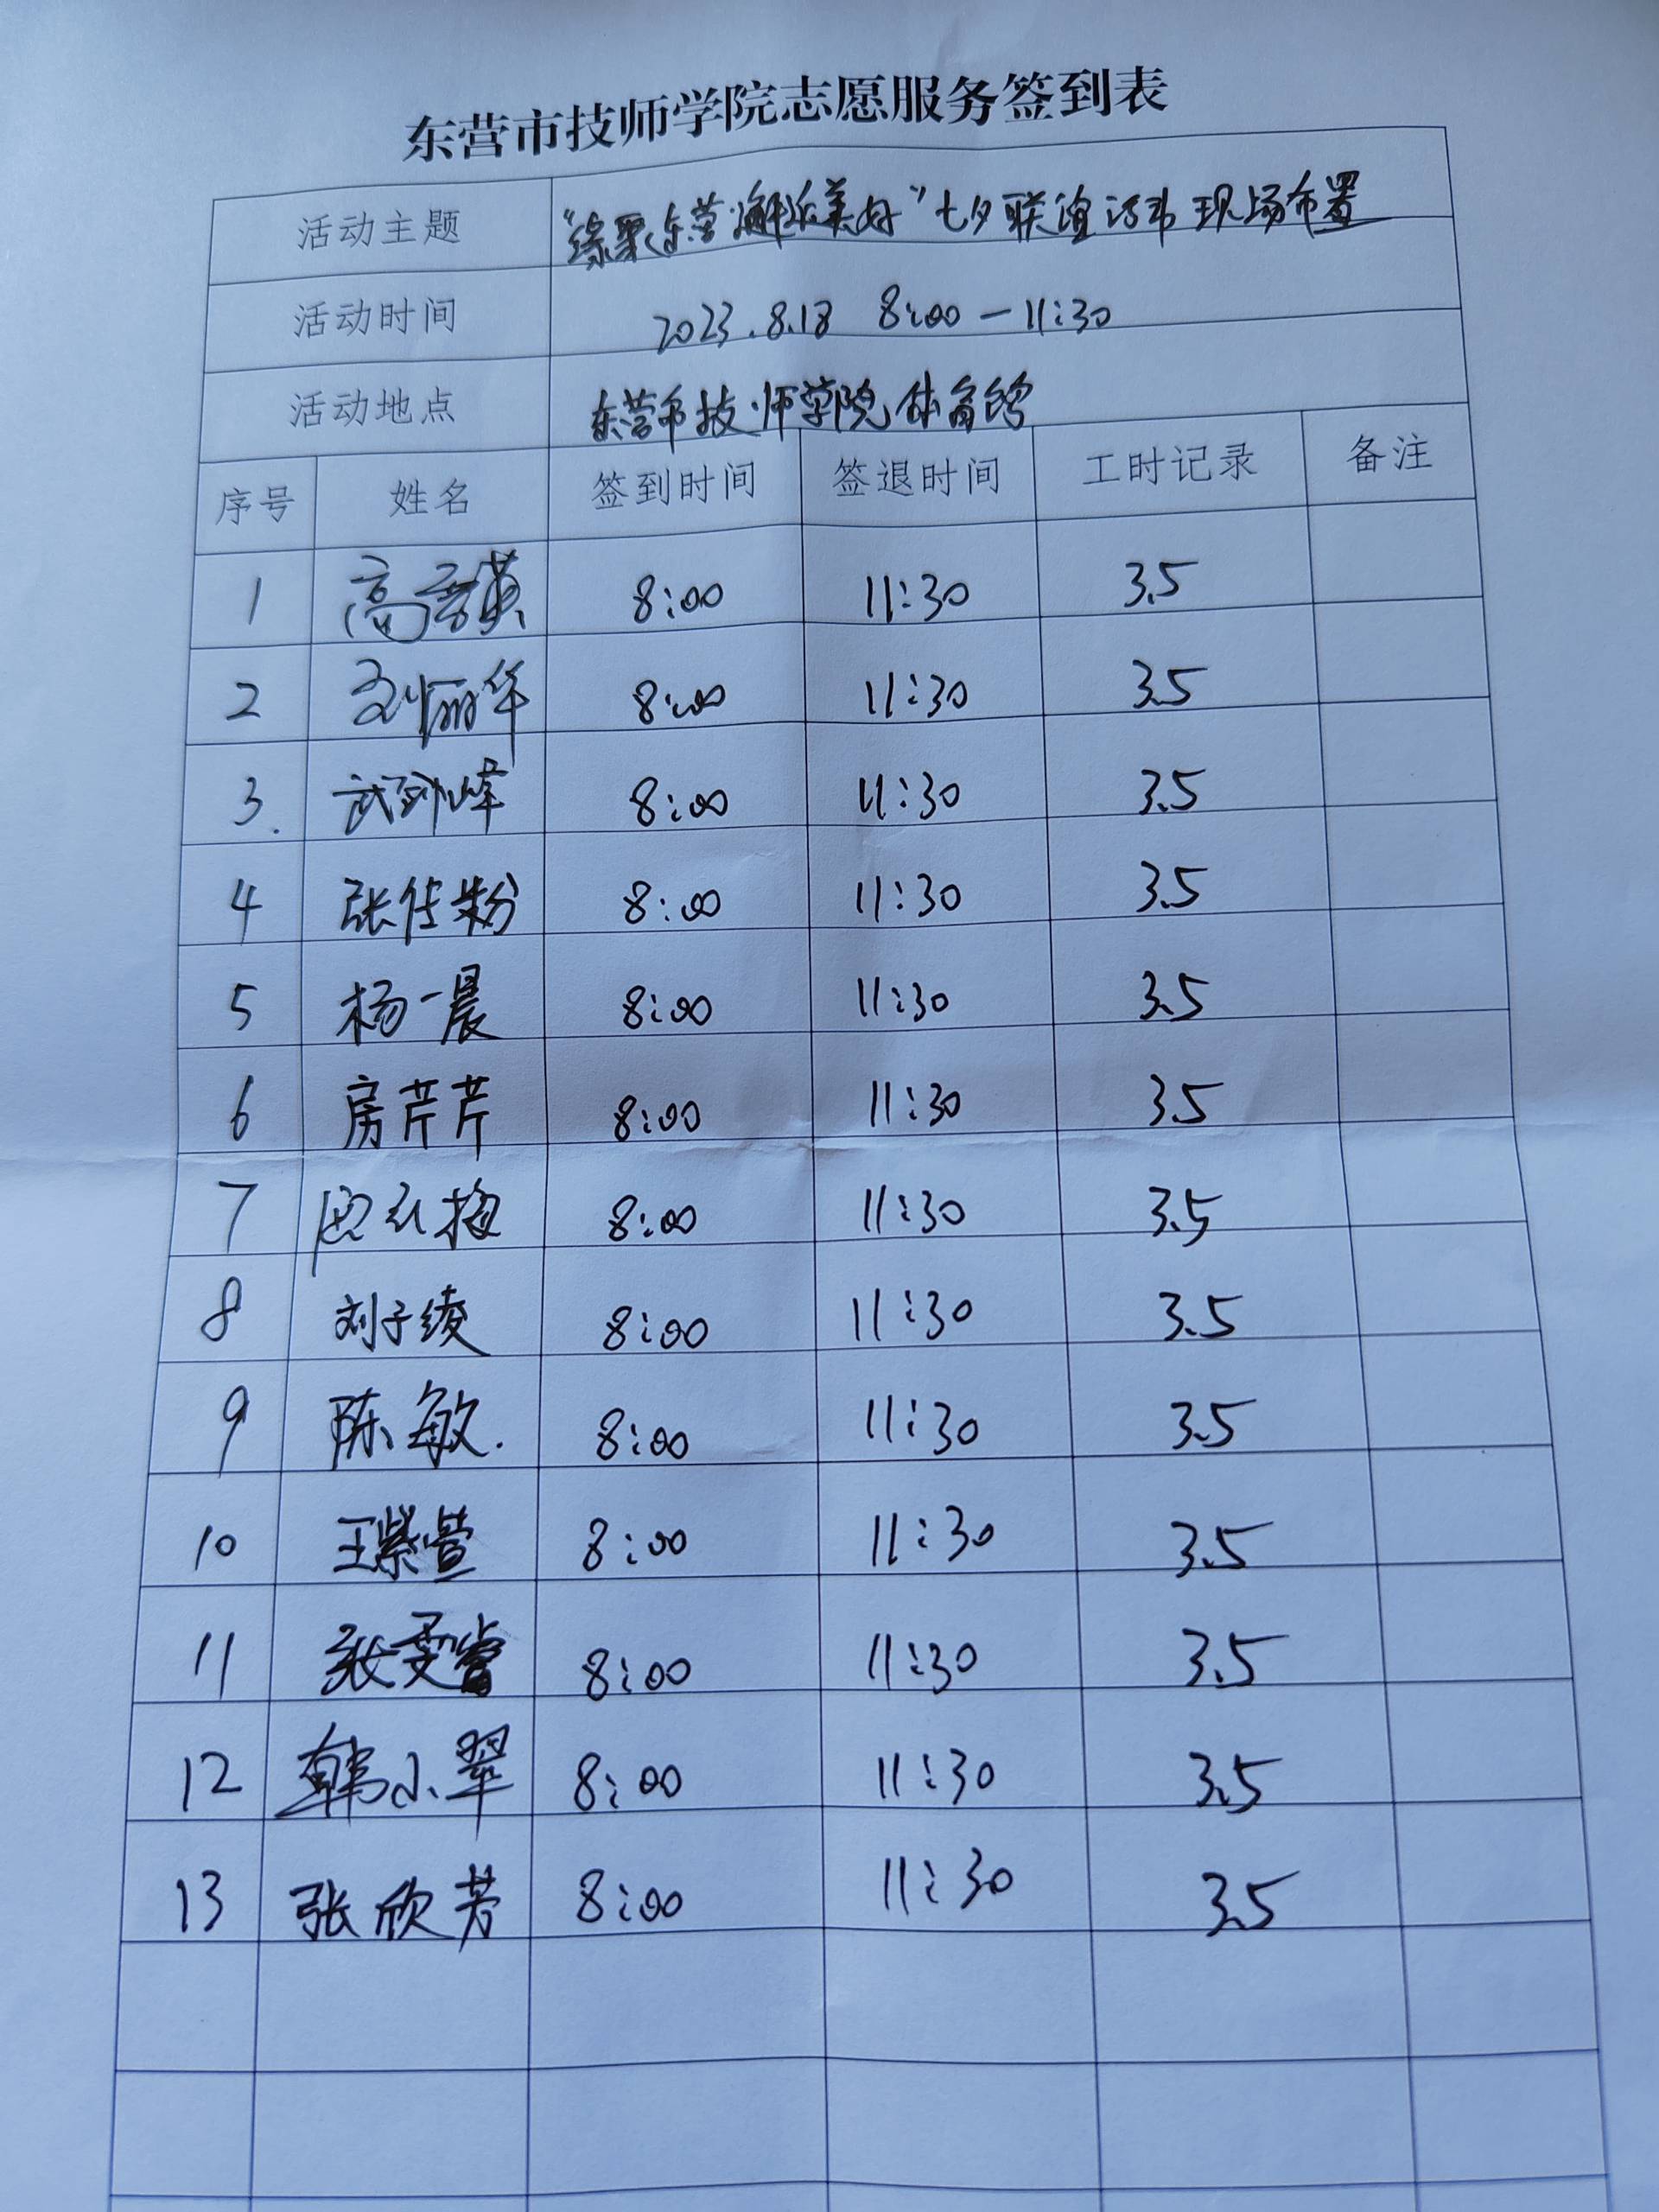 东营市技师学院志愿服务签到表
活动主题 "缘聚东营 邂逅美好"七夕联谊活动现场布置
活动时间 2023.8.18 8:00—11:30
活动地点 东营市技师学院体育馆
序号 姓名 签到时间 签退时间 工时记录 备注
1 高 英 8:00 11:30 3.5
2 刘丽华 8:00 11:30 3.5
3. 武 峰 8:00 11:30 3.5
4 张佳粉 8:00 11:30 3.5
5 杨一晨 8:00 11:30 3.5
6 房芹芹 8:00 11:30 3.5
7 梅 8:00 11:30 3.5
8 刘子绫 8:00 11:30 3.5
9 陈敏. 8:00 11:30 3.5
10 王紫萱 8:00 11:30 3.5
11 张雯睿 8:00 11:30 3.5
12 韩小翠 8:00 11:30 3.5
13 张欣芳 8:00 11:30 3.5